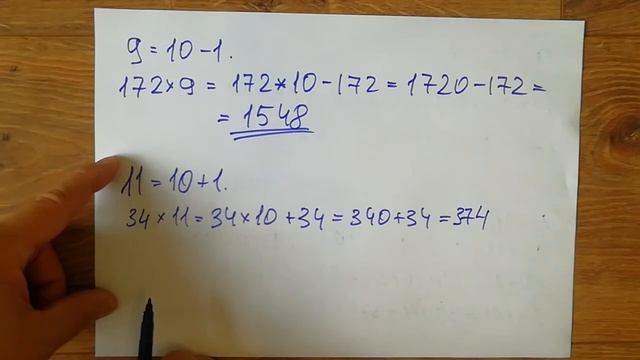 9 = 10 - 1.
172 × 9 = 172 * 10 - 172 = 1720 - 172 =
= 1548
11 = 10 + 1.
34 × 11 = 34 × 10 + 34 = 340 + 34 = 374